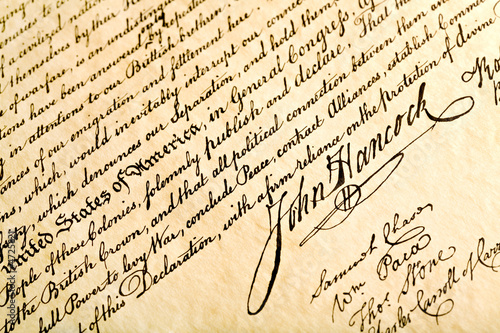 civilized nation
themselves by their Hands
of warfare, is an undistin
tions have been answered by
g in attentions to our British brethren.
ances of our emigration and settlement here.
ns, which, would inevitably interrupt our connec
ty, which denounces our Separation, and hold them
United States of America, in General Congress, A
ople of these Colonies, solemnly publish and declare, That the
to the British Crown, and that all political connection between them and
full Power to levy War, conclude Peace, contract Alliances, establish Comme
t of this Declaration, with a firm reliance on the protection of divine
John Hancock
Samuel Chase
Wm Paca
Thos Stone
Charles Carroll of Carr